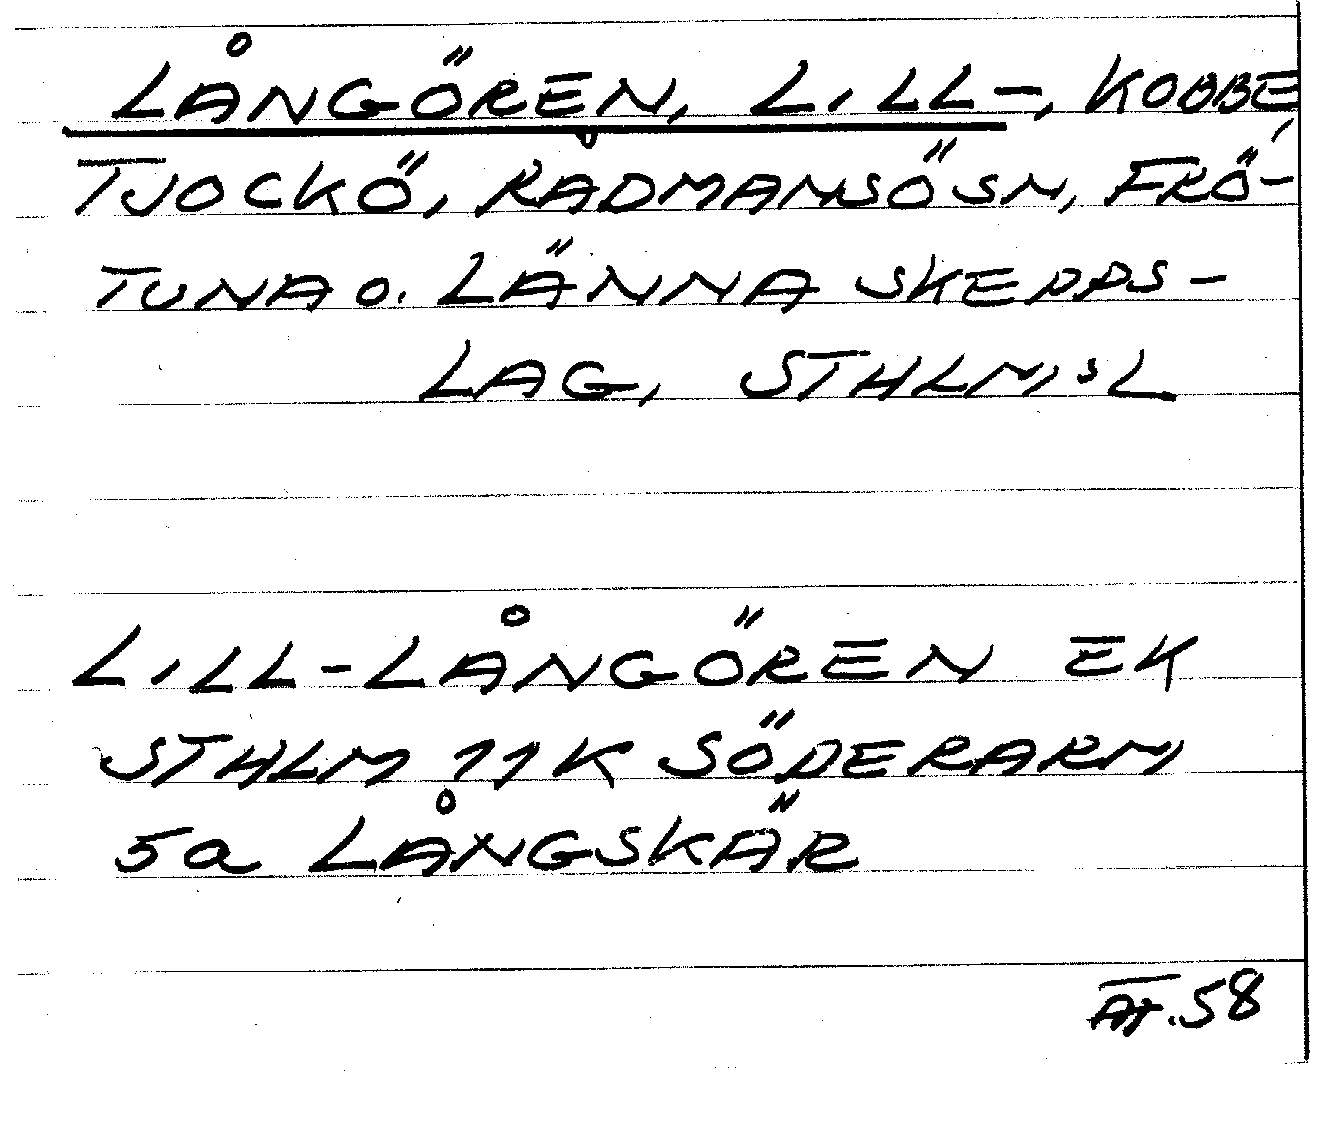 LÅNGÖREN, LILL-, KOBBE,
TJOCKÖ, RÅDMANSÖ SN, FRÖ-
TUNA O. LÄNNA SKEPPS-
LAG, STHLM:S L
LILL-LÅNGÖREN EK
STHLM 11K SÖDERARM
5a LÅNGSKÄR
58